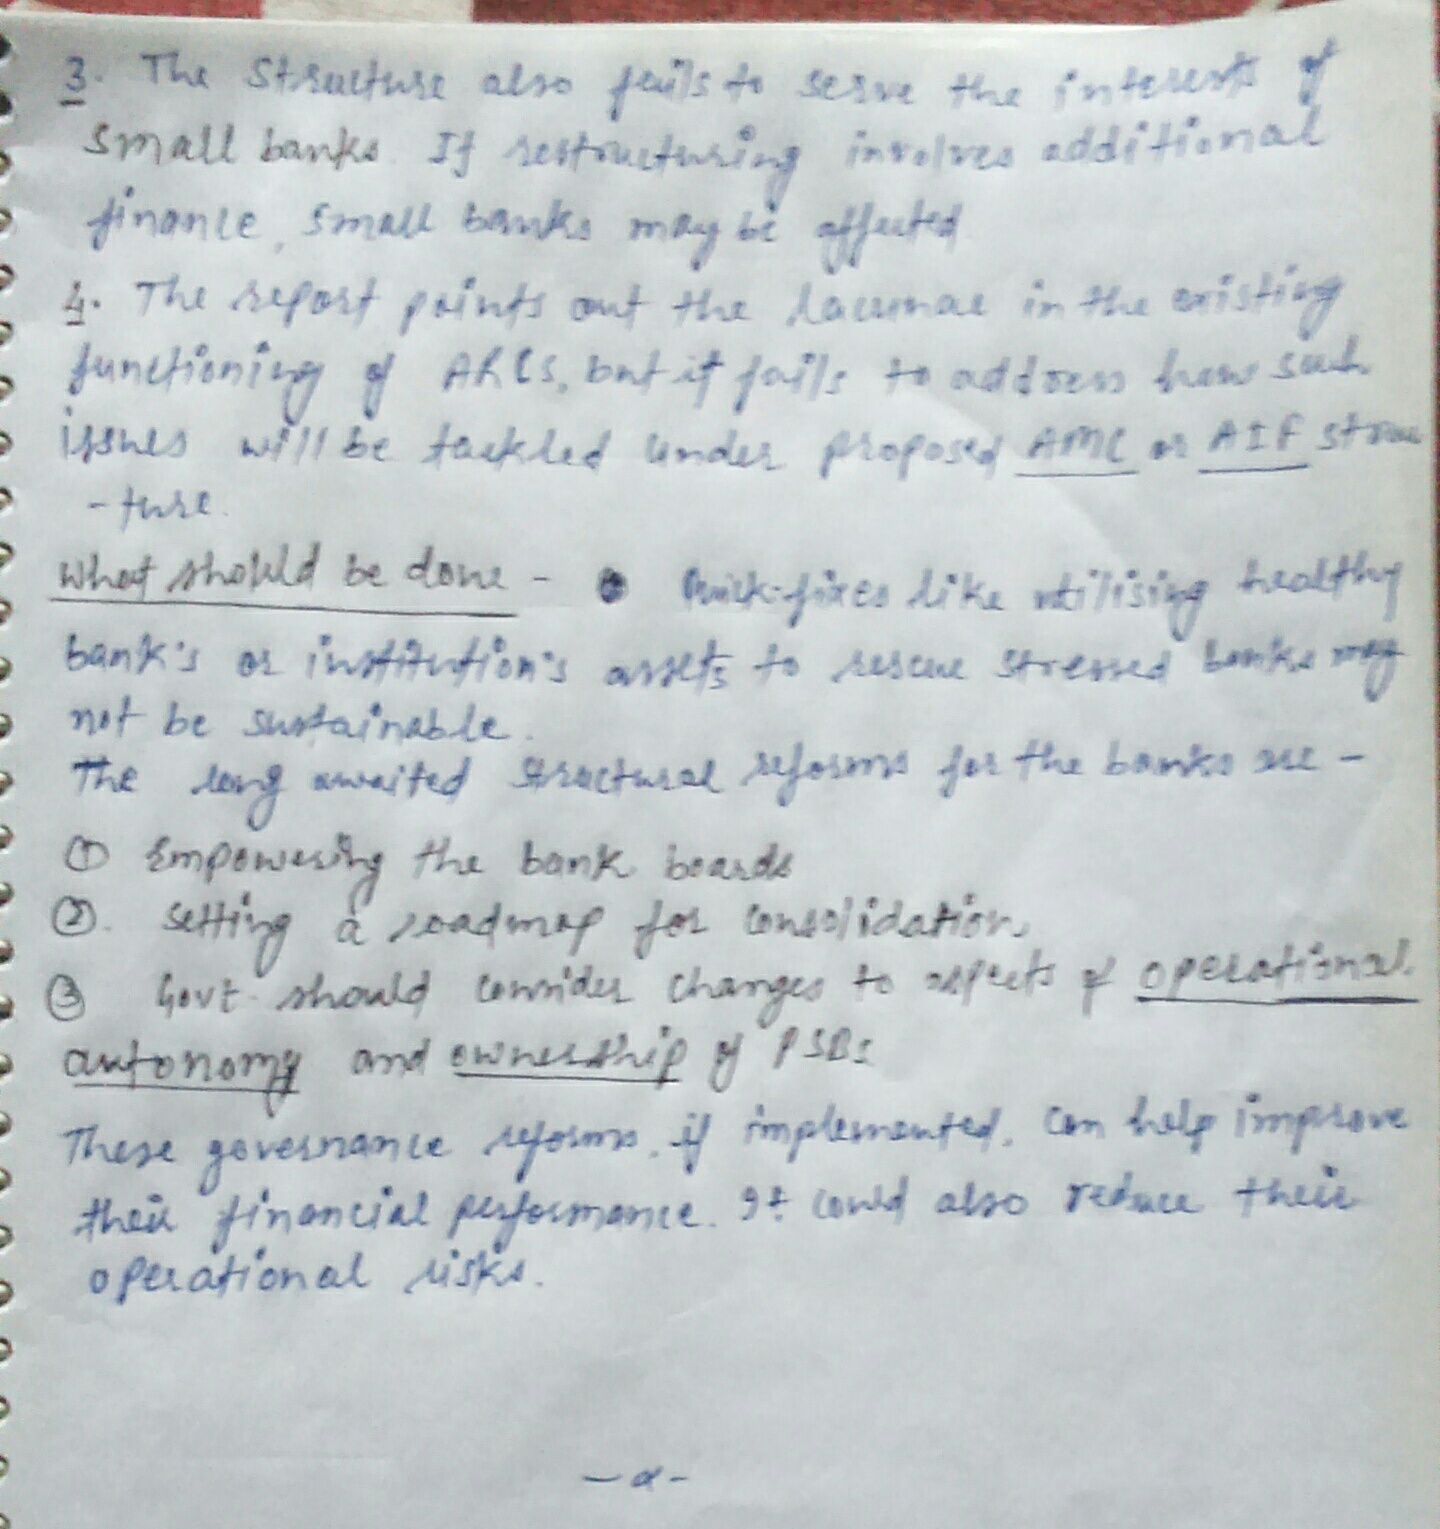 3. The Structure also fails to serve the interests of
small banks. If restructuring involves additional
finance, small banks may be affected
4. The report points out the lacunae in the existing
functioning of ARCs, but it fails to address how such
issues will be tackled under proposed AMC or AIF struc
- ture.
What should be done - Quick-fixes like utilising healthy
bank's or institution's assets to rescue stressed banks may
not be sustainable.
The long awaited structural reforms for the banks are -
① Empowering the bank boards
②. Setting a roadmap for consolidation
③ Govt. should consider changes to aspects of operational
autonomy and ownership of PSBs
These governance reforms, if implemented, can help improve
their financial performance. It could also reduce their
operational risks.